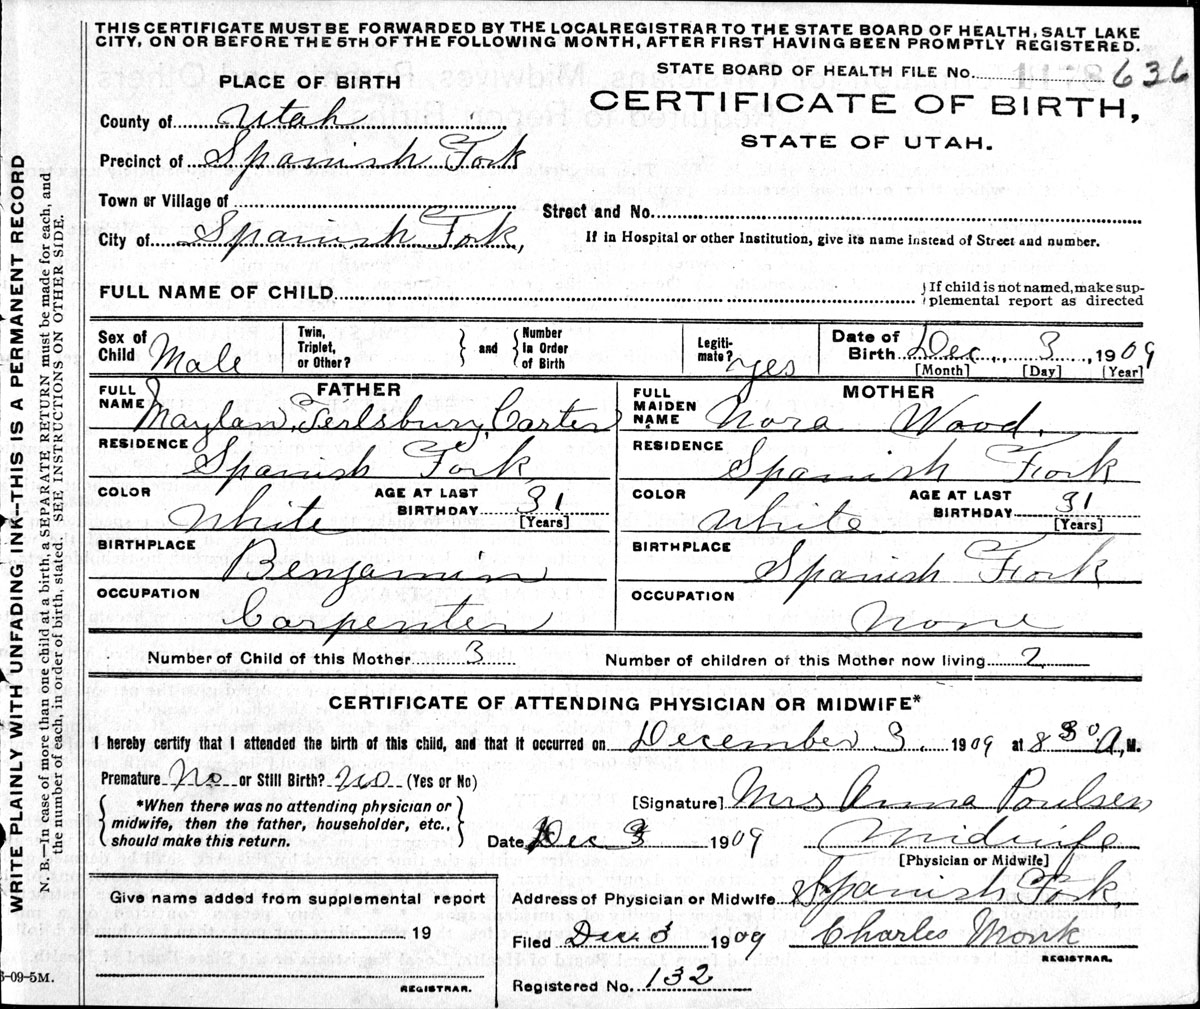 THIS CERTIFICATE MUST BE FORWARDED BY THE LOCAL REGISTRAR TO THE STATE BOARD OF HEALTH, SALT LAKE
CITY, ON OR BEFORE THE 5TH OF THE FOLLOWING MONTH, AFTER FIRST HAVING BEEN PROMPTLY REGISTERED.
STATE BOARD OF HEALTH FILE No. 636
PLACE OF BIRTH
CERTIFICATE OF BIRTH,
STATE OF UTAH.
County of Utah
Precinct of Spanish Fork
Town or Village of
Street and No.
City of Spanish Fork,
If in Hospital or other Institution, give its name instead of Street and number.
FULL NAME OF CHILD
{If child is not named, make sup-
plemental report as directed
Sex of Child Male
Twin, Triplet, or Other?
} and {
Number In Order of Birth
Legiti-mate? yes
Date of Birth Dec., 3, 1909
[Month] [Day] (Year]
FATHER
FULL NAME Maylan Terlsbury Carter
MOTHER
FULL MAIDEN NAME Nora Wood.
RESIDENCE Spanish Fork
RESIDENCE Spanish Fork
COLOR White AGE AT LAST BIRTHDAY 31 [Years]
COLOR White AGE AT LAST BIRTHDAY 31 [Years]
BIRTHPLACE Benjamin
BIRTHPLACE Spanish Fork
OCCUPATION Carpenter
OCCUPATION None
Number of Child of this Mother 3 Number of children of this Mother now living 2
CERTIFICATE OF ATTENDING PHYSICIAN OR MIDWIFE*
I hereby certify that I attended the birth of this child, and that it occurred on December 3, 1909 at 8 30 A, M.
Premature No or Still Birth? No (Yes or No)
{*When there was no attending physician or
midwife, then the father, householder, etc.,
should make this return.}
[Signature] Mrs Anna Poulsen,
Date Dec 3 1909 Midwife
[Physician or Midwife]
Give name added from supplemental report
19
REGISTRAR.
Address of Physician or Midwife Spanish Fork,
Filed Dec. 3 1909 Charles Monk
REGISTRAR.
Registered No. 132
WRITE PLAINLY WITH UNFADING INK--THIS IS A PERMANENT RECORD
N. B.—In case of more than one child at a birth, a SEPARATE RETURN must be made for each, and
the number of each, in order of birth, stated. SEE INSTRUCTIONS ON OTHER SIDE.
-09-5M.